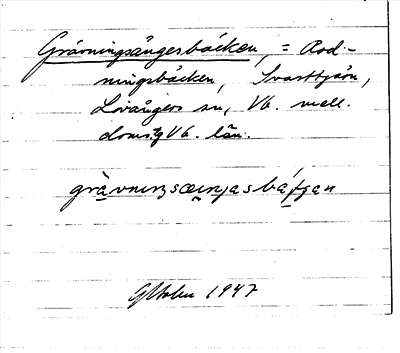 Grävningsängesbäcken, = Rod-
ningsbäcken, Svarttjärn,
Lövångers sn, Vb. mell.
domsg Vb. län.
grävniŋsæiŋjasbátjan
1947